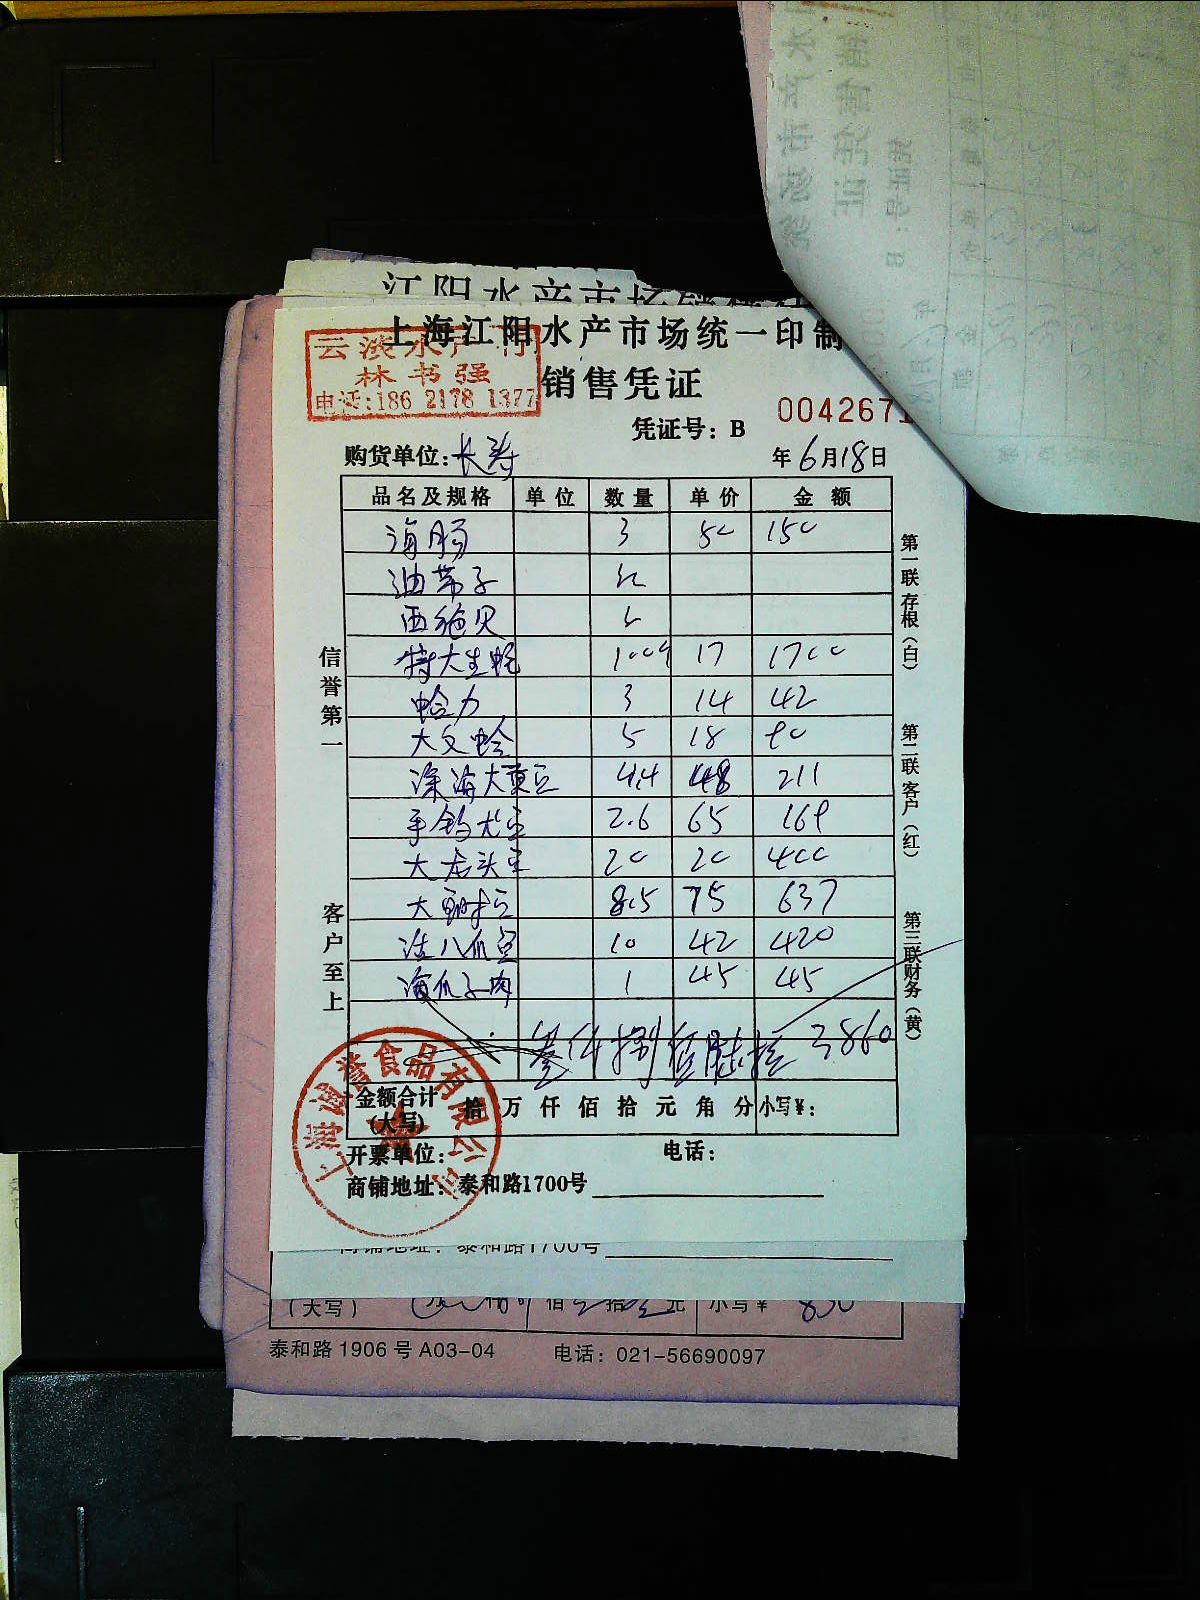 江阳水产市场
上海江阳水产市场统一印制
云淡水产行
林书强
电话:186 2178 1377
销售凭证
凭证号: B 0042671
购货单位: 长寿
年 6月18日
品名及规格 单位 数量 单价 金额
海肠 3 50 150
油带子
西施贝
特大生蚝 100个 17 1700
蛤力 3 14 42
大文蛤 5 18 90
深海大 4.4 48 211
手钓 2.6 65 169
大龙头 20 20 400
大 8.5 75 637
活八爪 10 42 420
海瓜子肉 1 45 45
叁仟捌佰陆拾 3860
金额合计
(大写) 拾万仟佰拾元角分 小写¥:
开票单位: 电话:
商铺地址: 泰和路1700号
信誉第一
客户至上
第一联存根(白)
第二联客户(红)
第三联财务(黄)
食品有限公司
商铺地址: 泰和路1700号
(大写) 佰 拾 元 小写¥ 830
泰和路1906号A03-04 电话: 021-56690097